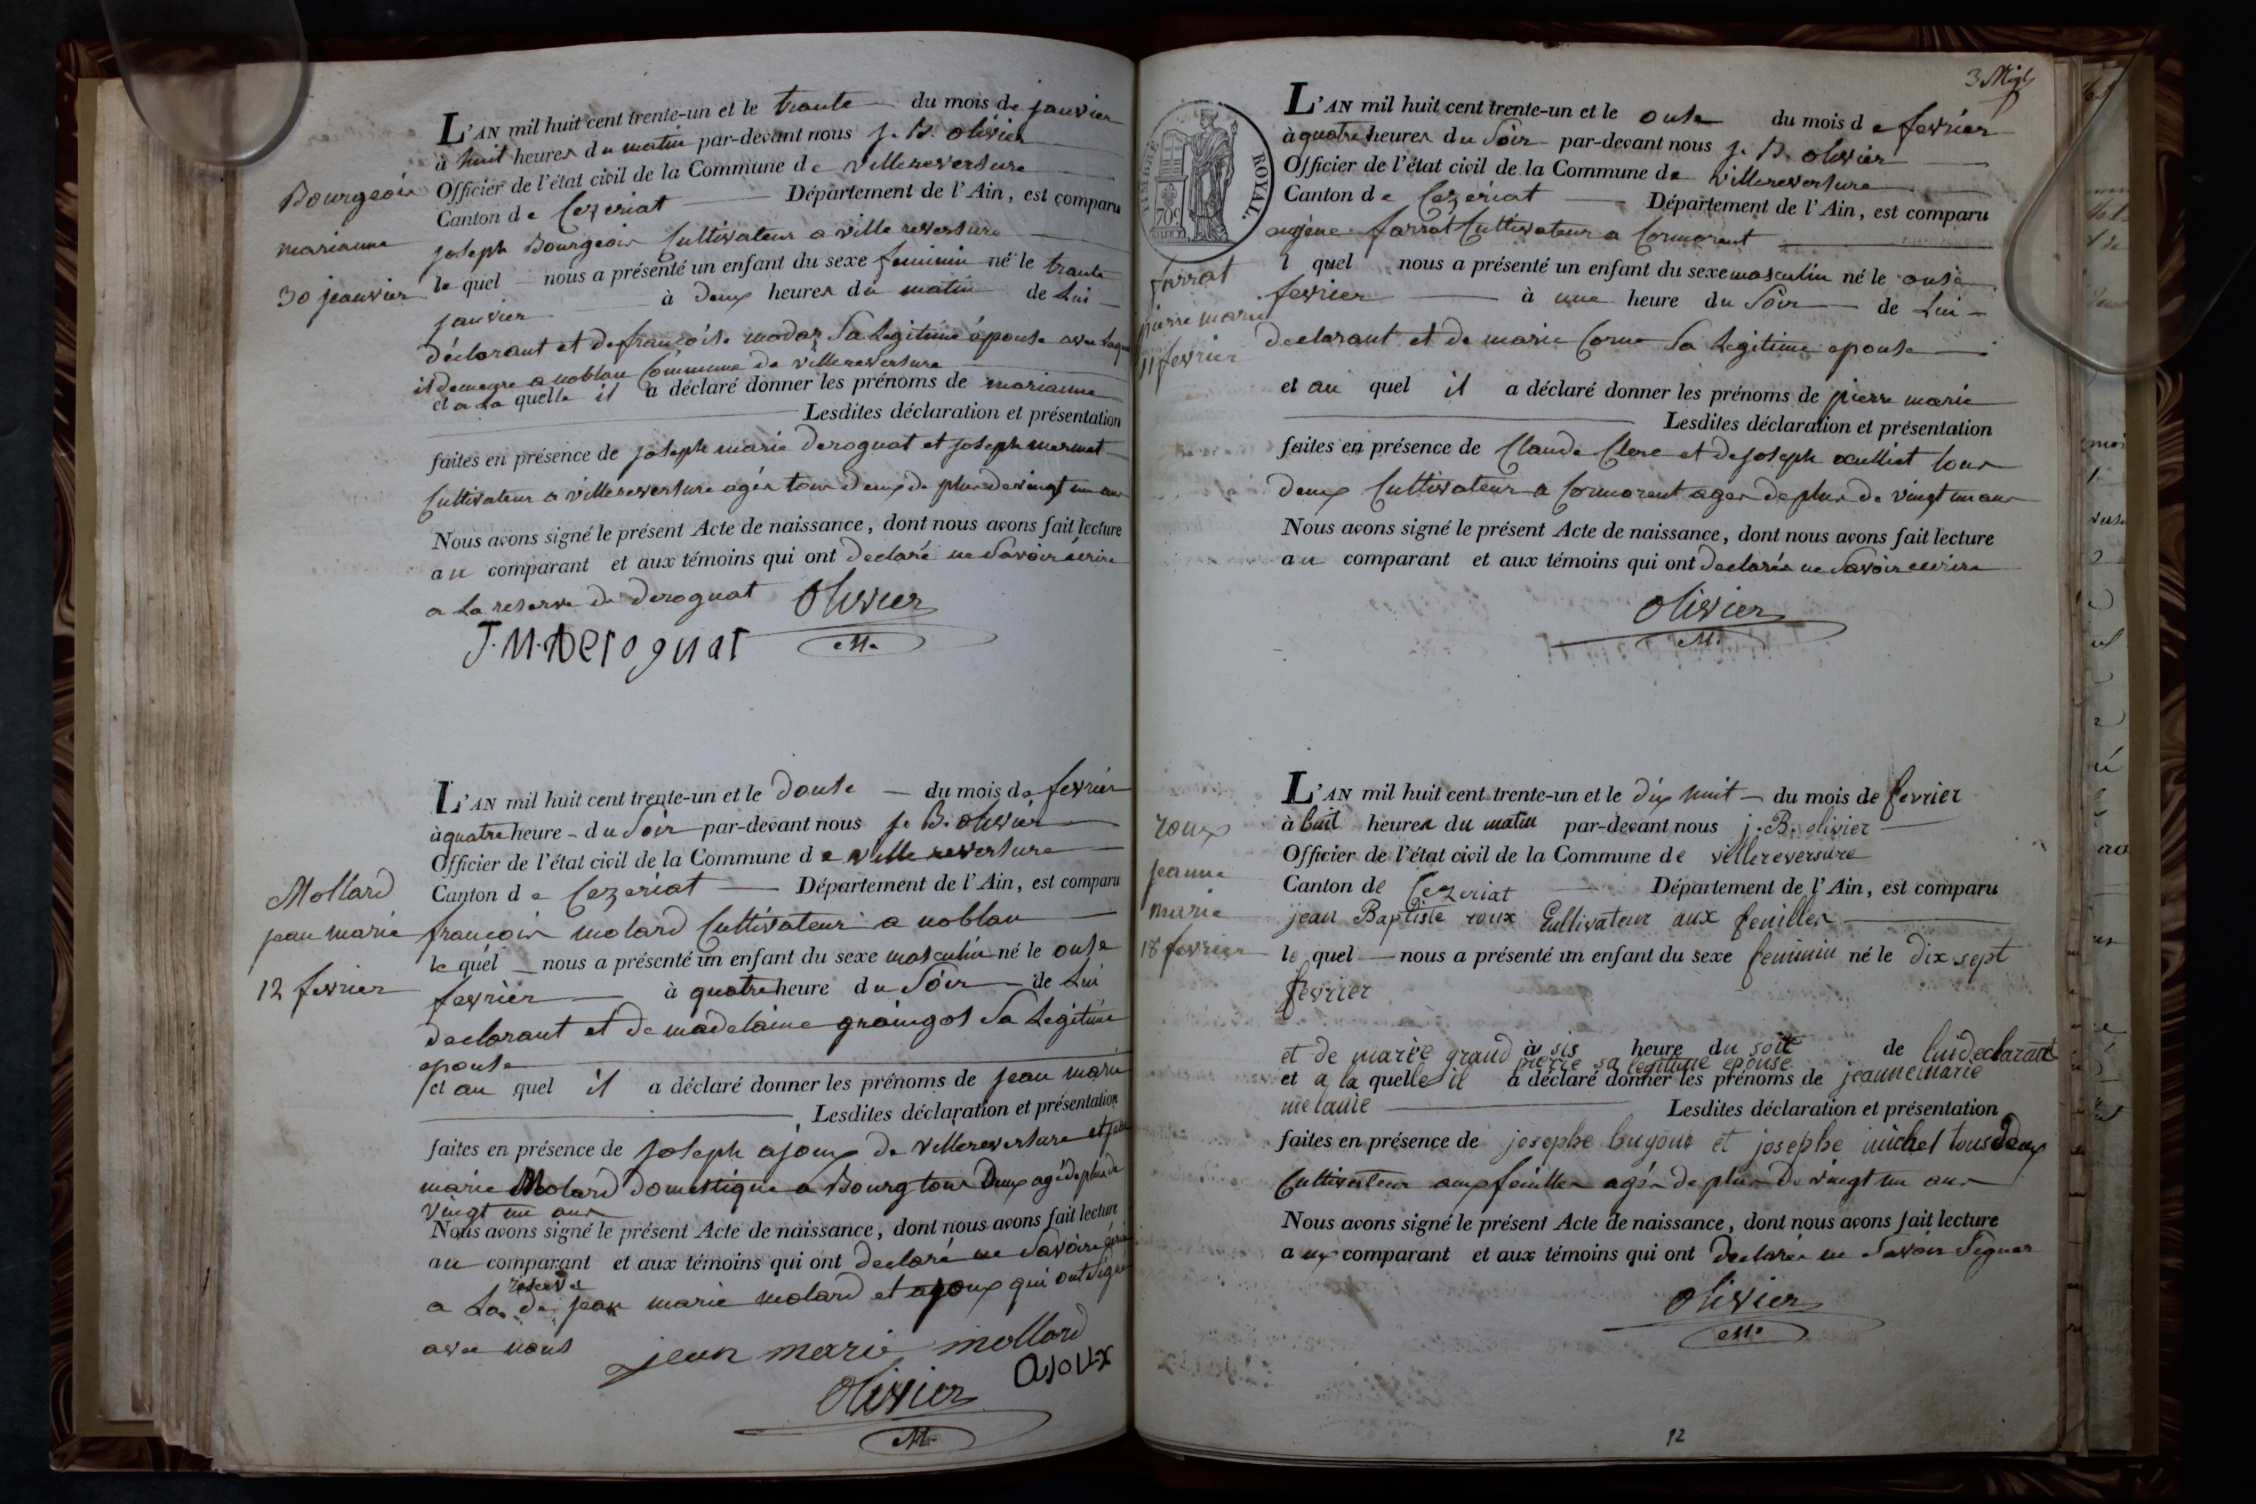 Bourgeois
marianne
30 jeanvier
L'AN mil huit cent trente-un et le trante du mois de janvier
à huit heures du matin par-devant nous J. B. olivier
Officier de l'état civil de la Commune de villereversure
Canton de Cezeriat Département de l'Ain, est comparu
joseph Bourgeois Cultivateur a villereversure
le quel nous a présenté un enfant du sexe feminin né le trante
janvier à deux heures du matin de Lui
déclarant et de françoise modaz Sa Legitime épouse avec Laquel
il demeure a noblan Commune de villereversure
et a La quelle il a déclaré donner les prénoms de marianne
Lesdites déclaration et présentation
faites en présence de joseph marie deroguat et joseph mermet
Cultivateur a villereversure agés tous deux de plus de vingt un ans
Nous avons signé le présent Acte de naissance, dont nous avons fait lecture
au comparant et aux témoins qui ont declaré ne Savoir écrire
a La reserve de deroguat Olivier
J.M. Deroguat M.
Mollard
jean marie
12 fevrier
L'AN mil huit cent trente-un et le douse du mois de fevrier
à quatre heure du Soir par-devant nous J. B. olivier
Officier de l'état civil de la Commune de villereversure
Canton de Cezeriat Département de l'Ain, est comparu
françois molard Cultivateur a noblan
le quel nous a présenté un enfant du sexe masculin né le onse
fevrier à quatre heure du Soir de Lui
declarant et de madelaine graingot Sa Legitime
epouse
et au quel il a déclaré donner les prénoms de jean marie
Lesdites déclaration et présentation
faites en présence de joseph ajoux de villereversure et jean
marie Molard domestique a Bourg tous Deux agé de plus de
vingt un ans
Nous avons signé le présent Acte de naissance, dont nous avons fait lecture
au comparant et aux témoins qui ont declaré ne Savoir écrire
reserve
a La de jean marie molard et ajoux qui ont signé
avec nous jean marie mollard
ajoux
Olivier
M.
3 M
TIMBRE ROYAL.
ferrat
pierre marie
11 fevrier
L'AN mil huit cent trente-un et le onse du mois de fevrier
à quatre heures du Soir par-devant nous J. B. olivier
Officier de l'état civil de la Commune de villereversure
Canton de Cezeriat Département de l'Ain, est comparu
augène farrat Cultivateur a Cormorent
l quel nous a présenté un enfant du sexe masculin né le onse
fevrier à une heure du Soir de Lui
declarant et de marie Corne Sa Legitime epouse
et au quel il a déclaré donner les prénoms de pierre marie
Lesdites déclaration et présentation
faites en présence de Claude Clerc et de joseph tous
deux Cultivateur a Cormorent ages de plus de vingt un ans
Nous avons signé le présent Acte de naissance, dont nous avons fait lecture
au comparant et aux témoins qui ont declarés ne Savoir ecrire
Olivier
M.
roux
jeanne
marie
18 fevrier
L'AN mil huit cent trente-un et le dix huit du mois de fevrier
à huit heures du matin par-devant nous j. B. olivier
Officier de l'état civil de la Commune de villereversure
Canton de Cezeriat Département de l'Ain, est comparu
jean Baptiste roux Cultivateur aux feuilles
le quel nous a présenté un enfant du sexe feminin né le dix sept
fevrier
à sis heure du soir de lui declarant
et de marie grand pierre sa legitime epouse
et a la quelle il a déclaré donner les prénoms de jeanne marie
melanie Lesdites déclaration et présentation
faites en présence de josephe buyout et josephe michel tous deux
Cultivateur aux feuilles agés de plus de vingt un ans
Nous avons signé le présent Acte de naissance, dont nous avons fait lecture
aux comparant et aux témoins qui ont declarés ne Savoir Signer
Olivier
M.
12